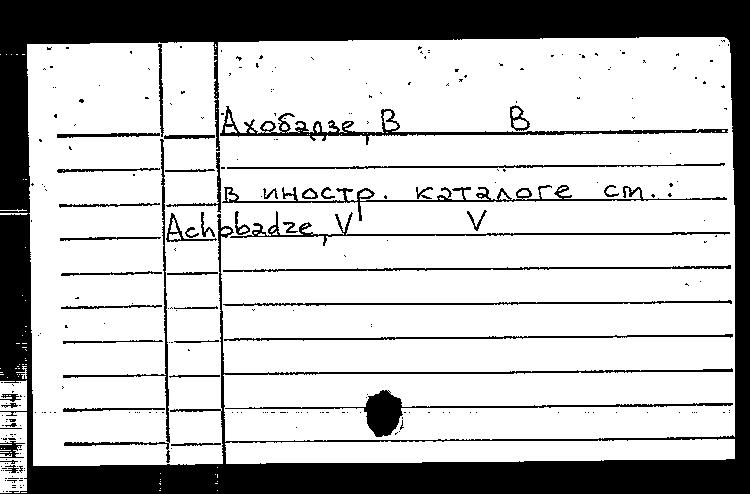 Ахобадзе, В В
в иностр. каталоге см.:
Achobadze, V V